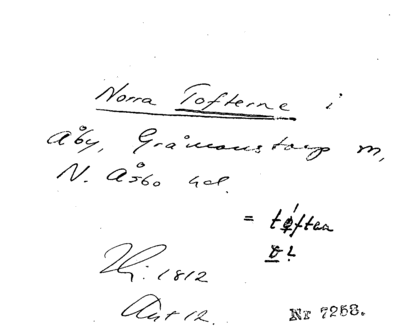 Norra Tofterne i
Åby, Gråmanstorp m,
N. Åsbo hd.
= tǿftan
o?
1812
Akt 12.
Nr 7258.